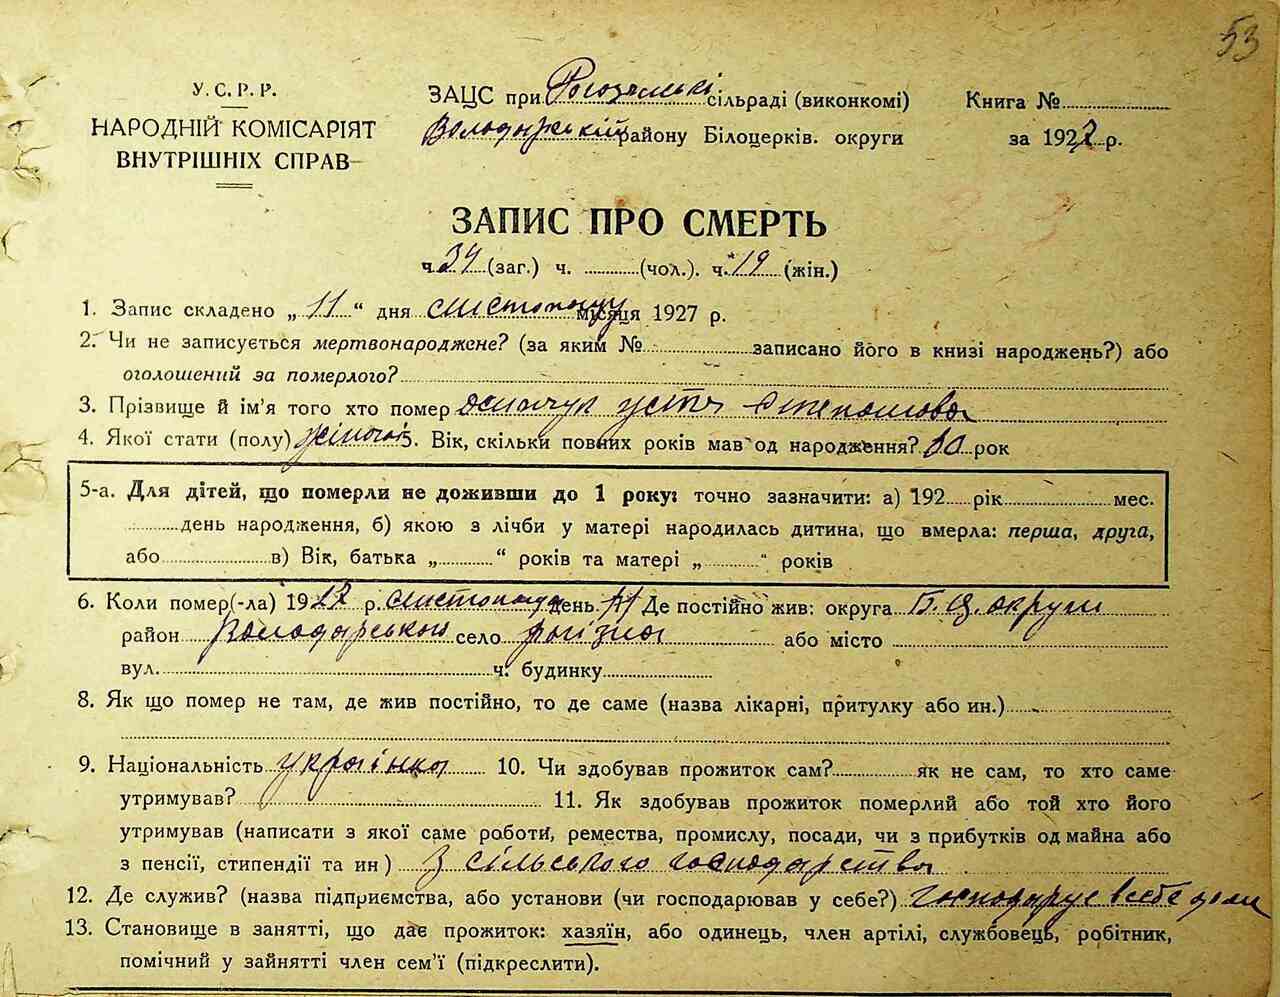 53
У.С.Р.Р.
НАРОДНІЙ КОМІСАРІЯТ
ВНУТРІШНІХ СПРАВ
ЗАЦС при сільраді (виконкомі)
Володарський району Білоцерків. округи
Книга №
за 1927 р.
ЗАПИС ПРО СМЕРТЬ
ч. 34 (заг.) ч. (чол.). ч. 19 (жін.)
1. Запис складено „ 11 “ дня листопаду місяця 1927 р.
2. Чи не записується мертвонароджене? (за яким № записано його в книзі народжень?) або
оголошений за померлого?
3. Прізвище й ім'я того хто помер Осипчук Устя Степанова
4. Якої стати (полу) жіночої 5. Вік, скільки повних років мав од народження? рок
5-а. Для дітей, що померли не доживши до 1 року: точно зазначити: а) 192 рік мес.
день народження, б) якою з лічби у матері народилась дитина, що вмерла: перша, друга,
або в) Вік, батька „ “ років та матері „ “ років
6. Коли помер(-ла) 1927 р. листопада день 11 Де постійно жив: округа Б.Ц. округи
район Володарського село Рогізна або місто
вул. ч. будинку
8. Як що помер не там, де жив постійно, то де саме (назва лікарні, притулку або ин.)
9. Національність українка 10. Чи здобував прожиток сам? як не сам, то хто саме
утримував? 11. Як здобував прожиток померлий або той хто його
утримував (написати з якої саме роботи, ремества, промислу, посади, чи з прибутків од майна або
з пенсії, стипендії та ин) З сільського господарства
12. Де служив? (назва підприємства, або установи (чи господарював у себе?) господарує в себе дома
13. Становище в занятті, що дає прожиток: хазяїн, або одинець, член артілі, службовець, робітник,
помічний у зайнятті член сем'ї (підкреслити).